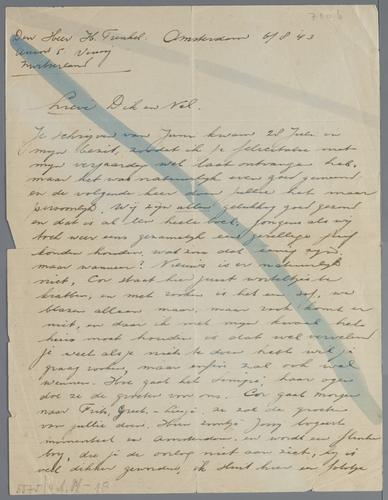 Den Heer H. Frenkel. Amsterdam 6/8 43
5 Vevey
Zwitserland
Lieve Dick en Nel.
Je schrijven van Juni kwam 28 Juli in
mijn bezit, zoodat ik je felicitatie met
mijn verjaardag wel laat ontvangen heb,
maar het was natuurlijk even goed gemeend
en de volgende keer doen jullie het maar
persoonlijk. Wij zijn allen gelukkig goed gezond
en dat is al een heele boel. Jongens als wij
toch weer eens gezamelijk een gezellige
konden houden, wat zou dat zijn,
maar wanneer? Nieuws is er natuurlijk
niet, Cor staat hier juist worteltjes te
krabben, en met rooken is het een sof, we
blazen alleen maar, maar rook komt er
niet, en daar ik met mijn kwaal het
huis moet houden is dat wel vervelend
je weet als je niets te doen hebt wil je
graag rooken, maar enfin zal ook wel
wennen. Hoe gaat het haar ogen
doe ze de groeten van ons. Cor gaat morgen
naar Frits, Greet en ze zal de groeten
van jullie doen. Hun zoontje Jong logeert
momenteel in Amsterdam en wordt een flinke
boy, die je de oorlog niet aan ziet, hij is
veel dikker geworden, ik sluit hier een fototje